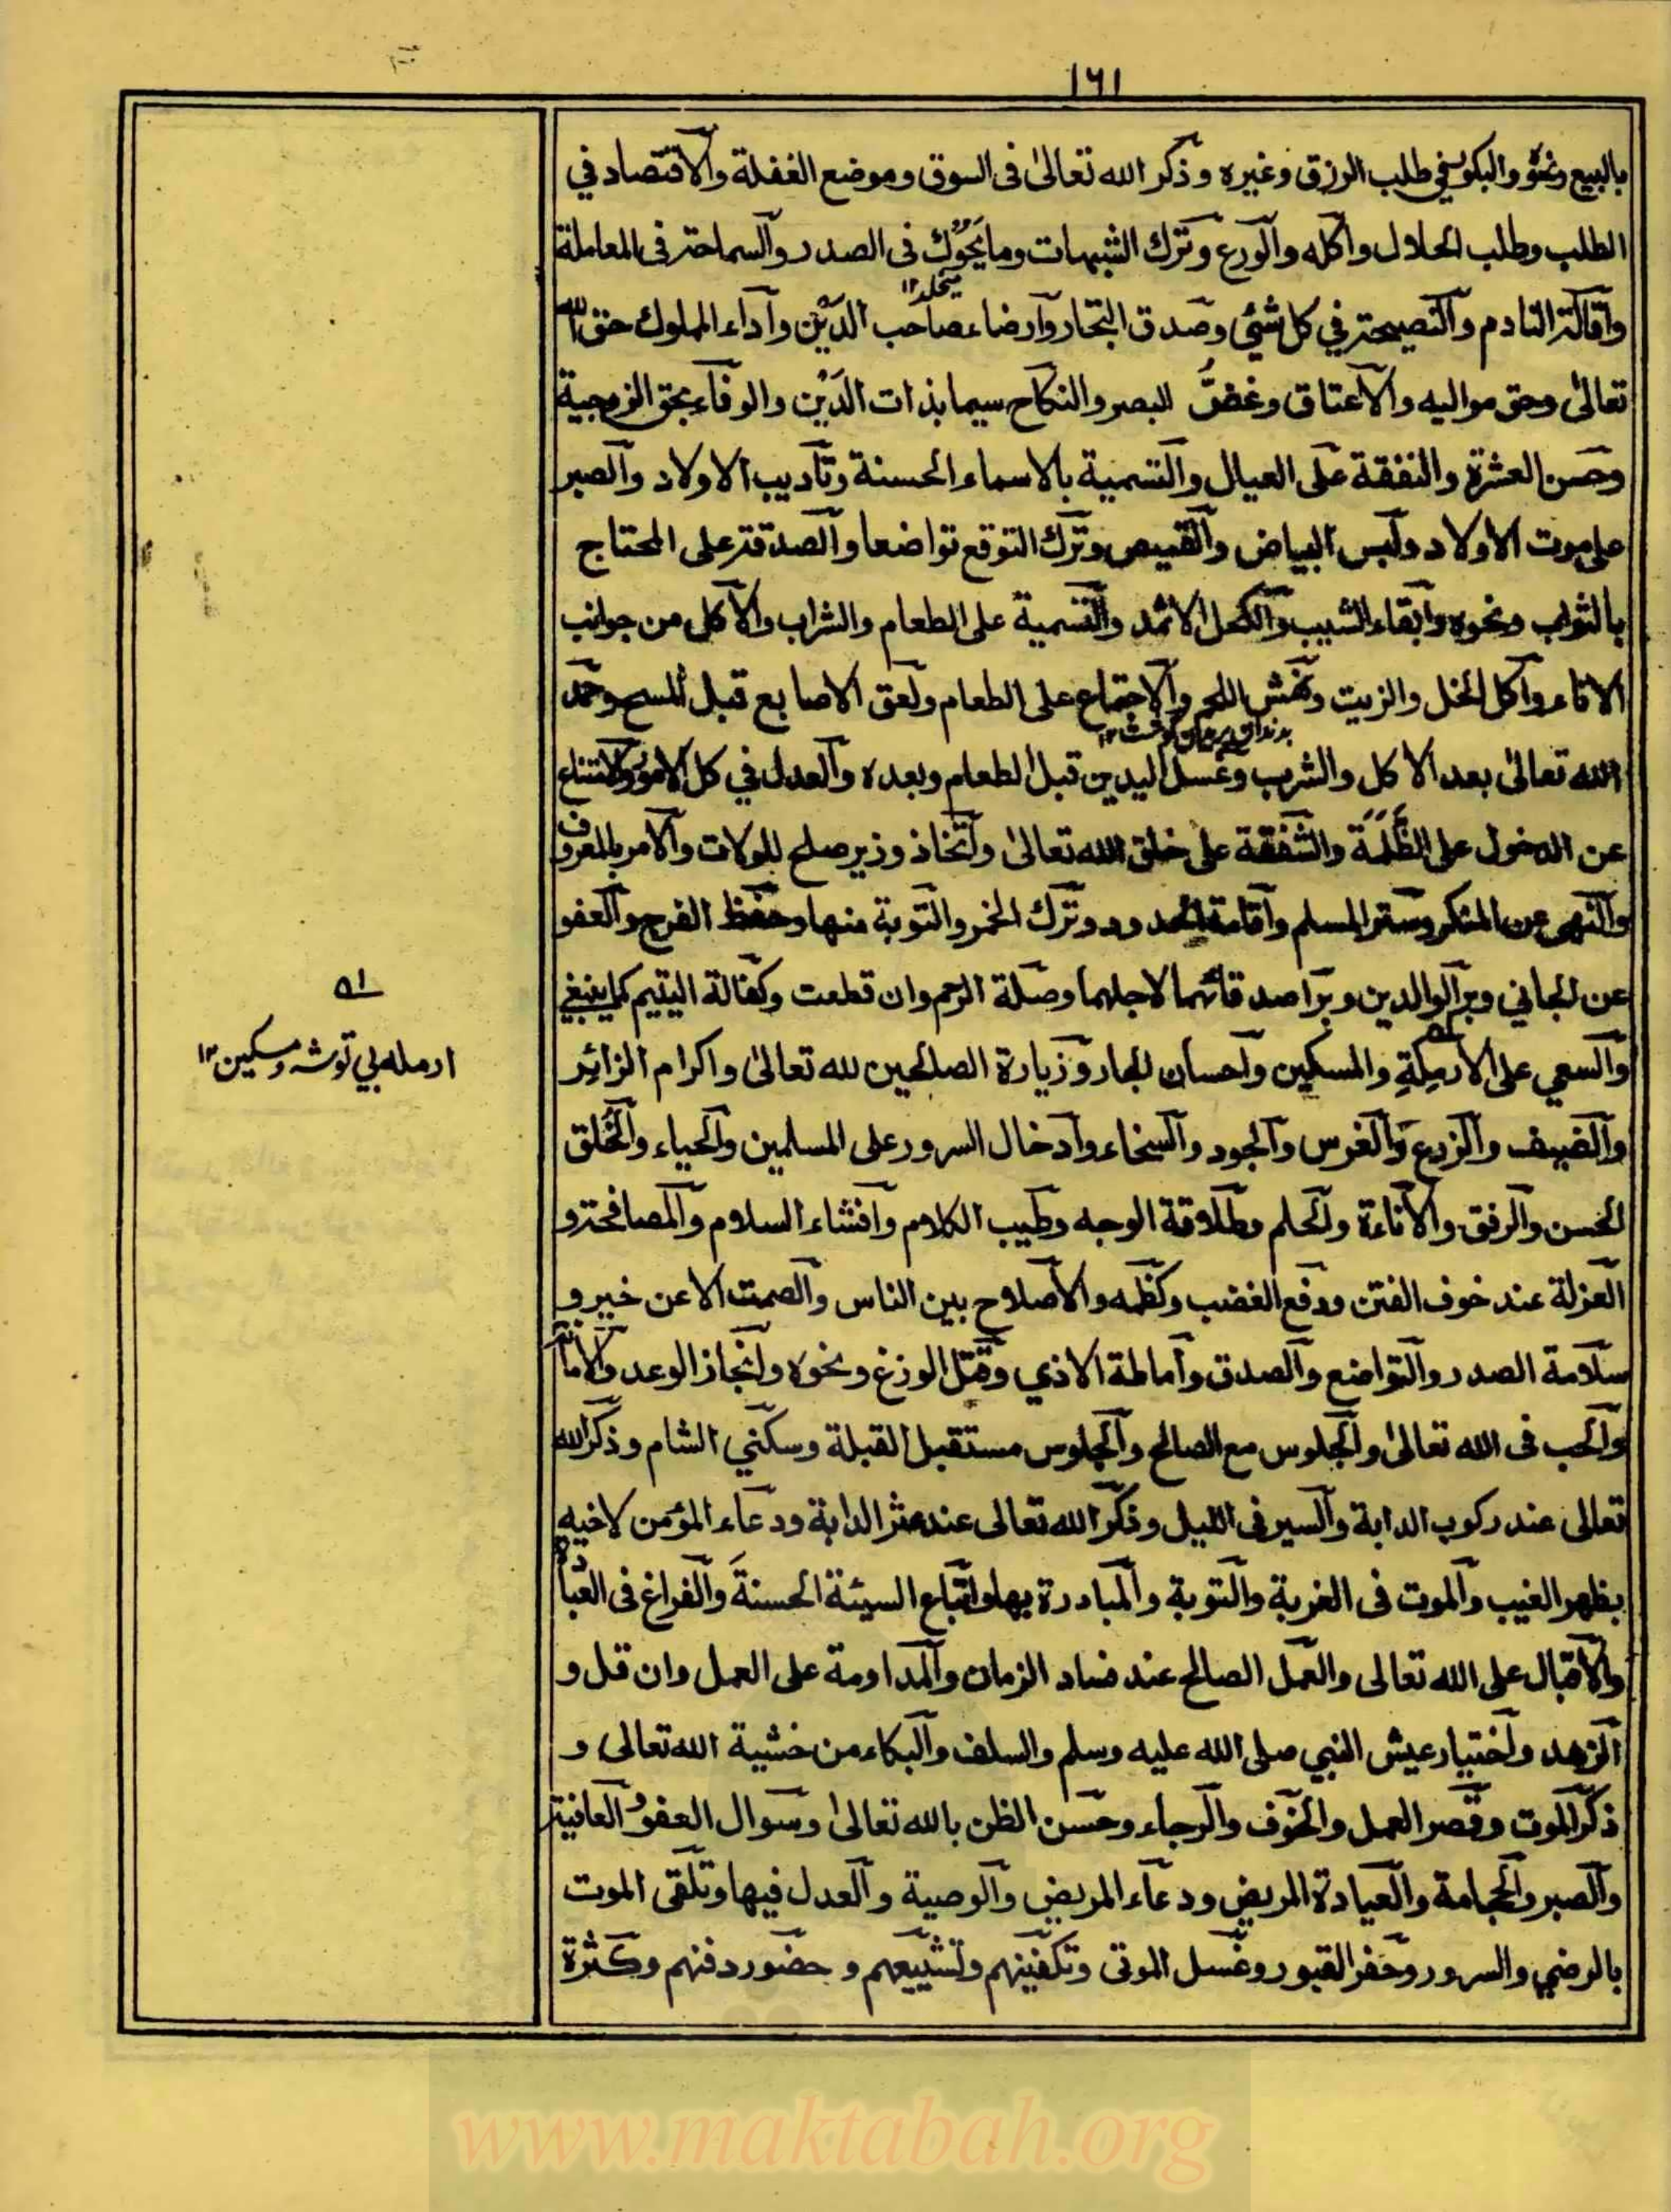 ١٦١
بالبيع ونحوه والبكور في طلب الرزق وغيره وذكر الله تعالىٰ فى السوق وموضع الغفلة والاقتصاد في
الطلب وطلب الحلال واكله والورع وترك الشبهات وما يَحُوك فى الصدر والسماحة فى المعاملة
واقالة النادم والنصيحة في كل شئي وصدق التجار وارضاء صاحب الدَيْن واداء المملوك حق الله
تعالىٰ وحق مواليه والاعتاق وغضُّ البصر والنكاح سيما بذات الدَيْن والوفاء بحق الزوجية
وحسن العشرة والنفقة على العيال والتسمية بالاسماء الحسنة وتاديب الاولاد والصبر
على موت الاولاد ولبس البياض والقميص وترك التوقع تواضعا والصدقة على المحتاج
بالثواب ونحوه وابقاء الشيب والكحل الاثمد والتسمية على الطعام والشراب والاكل من جوانب
الاناء واكل الخل والزيت ونهش اللحم والاجتماع على الطعام ولعق الاصابع قبل المسح وحمد
الله تعالىٰ بعد الاكل والشرب وغسل اليدين قبل الطعام وبعده والعدل في كل الامور والامتناع
عن الدخول على الظَلَمَة والشفقة على خلق الله تعالىٰ واتخاذ وزير صلح للولات والامر بالمعروف
والنهى عن المنكر وستر المسلم واقامة الحدود وترك الخمر والتوبة منها وحفظ الفرج والعفو
عن الجاني وبر الوالدين وبر اصدقائهما لاجلهما وصلة الرحم وان قطعت وكفالة اليتيم كما ينبغي
والسعي على الارملةِ والمسكين واحسان الجار وزيارة الصالحين لله تعالىٰ واكرام الزائر
والضيف والزرع والغرس والجود والسخاء وادخال السرور على المسلمين والحياء والخُلق
الحسن والرفق والاناءة والحلم وطلاقة الوجه وطيب الكلام وافشاء السلام والمصافحة و
العزلة عند خوف الفتن ودفع الغضب وكظمه والاصلاح بين الناس والصمت الا عن خير و
سلامة الصدر والتواضع والصدق واماطة الاذي وقتل الوزغ ونحوه وانجاز الوعد والامانة
والحب فى الله تعالىٰ والجلوس مع الصالح والجلوس مستقبل القبلة وسكني الشام وذكر الله
تعالى عند ركوب الدابة والسير فى الليل وذكر الله تعالى عند عثر الدابة ودعاء المؤمن لاخيه
بظهر الغيب والموت فى الغربة والتوبة والمبادرة بها واتباع السيئة الحسنةَ والفراغ فى العبادة
والاقبال على الله تعالى والعمل الصالح عند فساد الزمان والمداومة على العمل وان قل و
الزهد واختيار عيش النبي صلى الله عليه وسلم والسلف والبكاء من خشية الله تعالى و
ذكر الموت وقصر العمل والخوف والرجاء وحسن الظن بالله تعالىٰ وسوال العفو والعافية
والصبر والحجامة والعيادة المريض ودعاء المريض والوصية والعدل فيها وتلقى الموت
بالرضي والسرور وحفر القبور وغسل الموتى وتكفينهم وتشييعهم وحضور دفنهم وكثرة
ارمله بي توشه ومسكين ١٢
www.maktabah.org